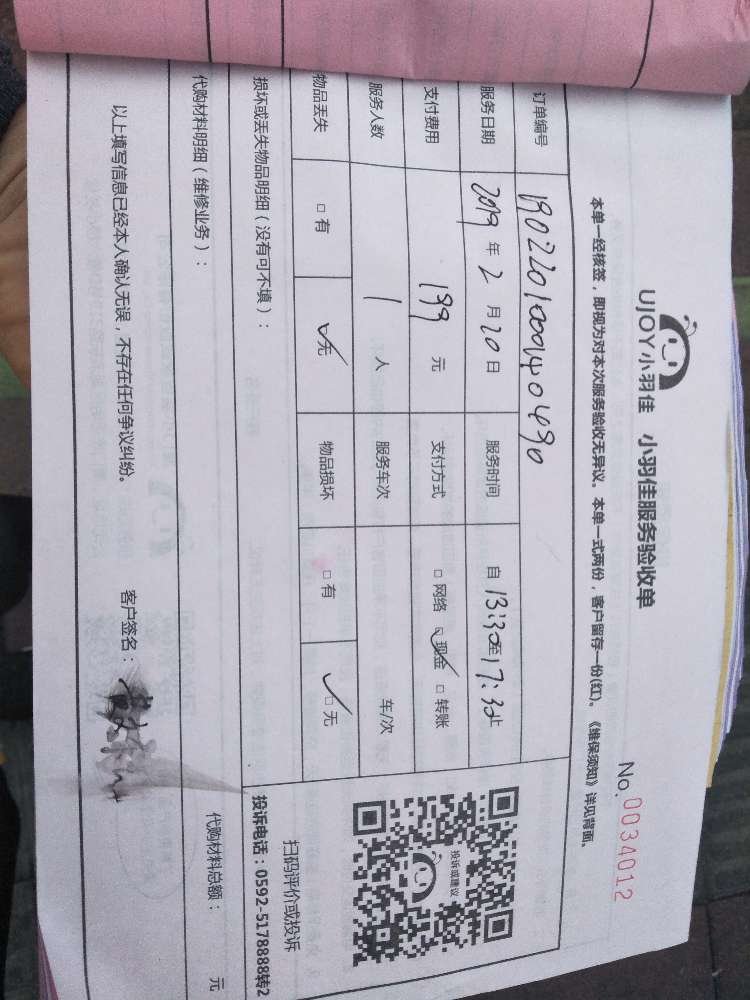 UJOY小羽佳 小羽佳服务验收单
No.0034012
本单一经核签，即视为对本次服务验收无异议。本单一式两份，客户留存一份(红)。《维保须知》详见背面。
订单编号 190220100014040490
服务日期 2019 年 2 月 20 日 服务时间 自 13:30至17:30止
支付费用 199 元 支付方式 □ 网络 ☑ 现金 □ 转账
服务人数 1 人 服务车次 车/次
物品丢失 □ 有 ☑ 无 物品损坏 □ 有 ☑ 无
投诉或建议
扫码评价或投诉
投诉电话：0592-5178888转2
损坏或丢失物品明细（没有可不填）：
代购材料明细（维修业务）：
代购材料总额： 元
以上填写信息已经本人确认无误，不存在任何争议纠纷。
客户签名：